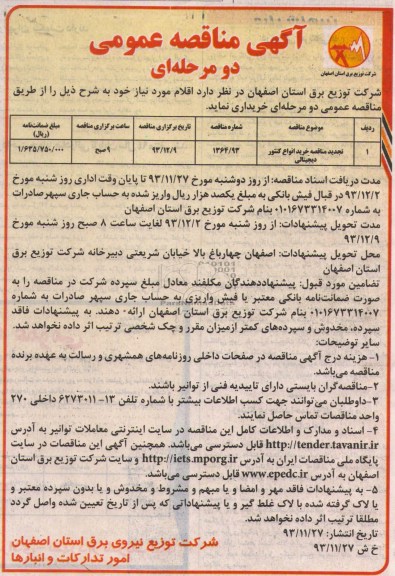 آگهی مناقصه عمومی
دو مرحله‌ای
شرکت توزیع برق استان اصفهان
شرکت توزیع برق استان اصفهان در نظر دارد اقلام مورد نیاز خود به شرح ذیل را از طریق
مناقصه عمومی دو مرحله‌ای خریداری نماید.
ردیف موضوع مناقصه شماره مناقصه تاریخ برگزاری مناقصه ساعت برگزاری مناقصه مبلغ ضمانت‌نامه (ریال)
۱ تجدید مناقصه خرید انواع کنتور دیجیتالی ۱۳۶۴/۹۳ ۹۳/۱۲/۹ ۹ صبح ۱/۶۳۵/۷۵۰/۰۰۰
مدت دریافت اسناد مناقصه: از روز دوشنبه مورخ ۹۳/۱۱/۲۷ تا پایان وقت اداری روز شنبه مورخ
۹۳/۱۲/۲ در قبال فیش بانکی به مبلغ یکصد هزار ریال واریز شده به حساب جاری سپهر صادرات
به شماره ۰۱۰۱۶۷۳۳۱۴۰۰۷ بنام شرکت توزیع برق استان اصفهان
مدت تحویل پیشنهادات: از روز شنبه مورخ ۹۳/۱۲/۲ لغایت ساعت ۸ صبح روز شنبه مورخ
۹۳/۱۲/۹
محل تحویل پیشنهادات: اصفهان چهارباغ بالا خیابان شریعتی دبیرخانه شرکت توزیع برق
استان اصفهان
تضامین مورد قبول: پیشنهاددهندگان مکلفند معادل مبلغ سپرده شرکت در مناقصه را به
صورت ضمانت‌نامه بانکی معتبر یا فیش واریزی به حساب جاری سپهر صادرات به شماره
۰۱۰۱۶۷۳۳۱۴۰۰۷ بنام شرکت توزیع برق استان اصفهان ارائه دهند. به پیشنهادات فاقد
سپرده، مخدوش و سپرده‌های کمتر ازمیزان مقرر و چک شخصی ترتیب اثر داده نخواهد شد.
سایر توضیحات:
۱- هزینه درج آگهی مناقصه در صفحات داخلی روزنامه‌های همشهری و رسالت به عهده برنده
مناقصه می‌باشد.
۲-مناقصه‌گران بایستی دارای تاییدیه فنی از توانیر باشند.
۳-داوطلبان می‌توانند جهت کسب اطلاعات بیشتر با شماره تلفن ۱۳- ۶۲۷۳۰۱۱ داخلی ۲۷۰
واحد مناقصات تماس حاصل نمایند.
۴- اسناد و مدارک و اطلاعات کامل این مناقصه در سایت اینترنتی معاملات توانیر به آدرس
http://tender.tavanir.ir قابل دسترسی می‌باشد. همچنین آگهی این مناقصات در سایت
پایگاه ملی مناقصات ایران به آدرس http://iets.mporg.ir و سایت شرکت توزیع برق استان
اصفهان به آدرس www.epedc.ir قابل دسترسی می‌باشد.
۵- به پیشنهادات فاقد مهر و امضا و یا مبهم و مشروط و مخدوش و یا بدون سپرده معتبر و
یا لاک گرفته شده با لاک غلط گیر و یا پیشنهاداتی که پس از تاریخ تعیین شده واصل گردد
مطلقا ترتیب اثر داده نخواهد شد.
تاریخ انتشار: ۹۳/۱۱/۲۷
خ ش ۹۳/۱۱/۲۷
شرکت توزیع نیروی برق استان اصفهان
امور تدارکات و انبارها